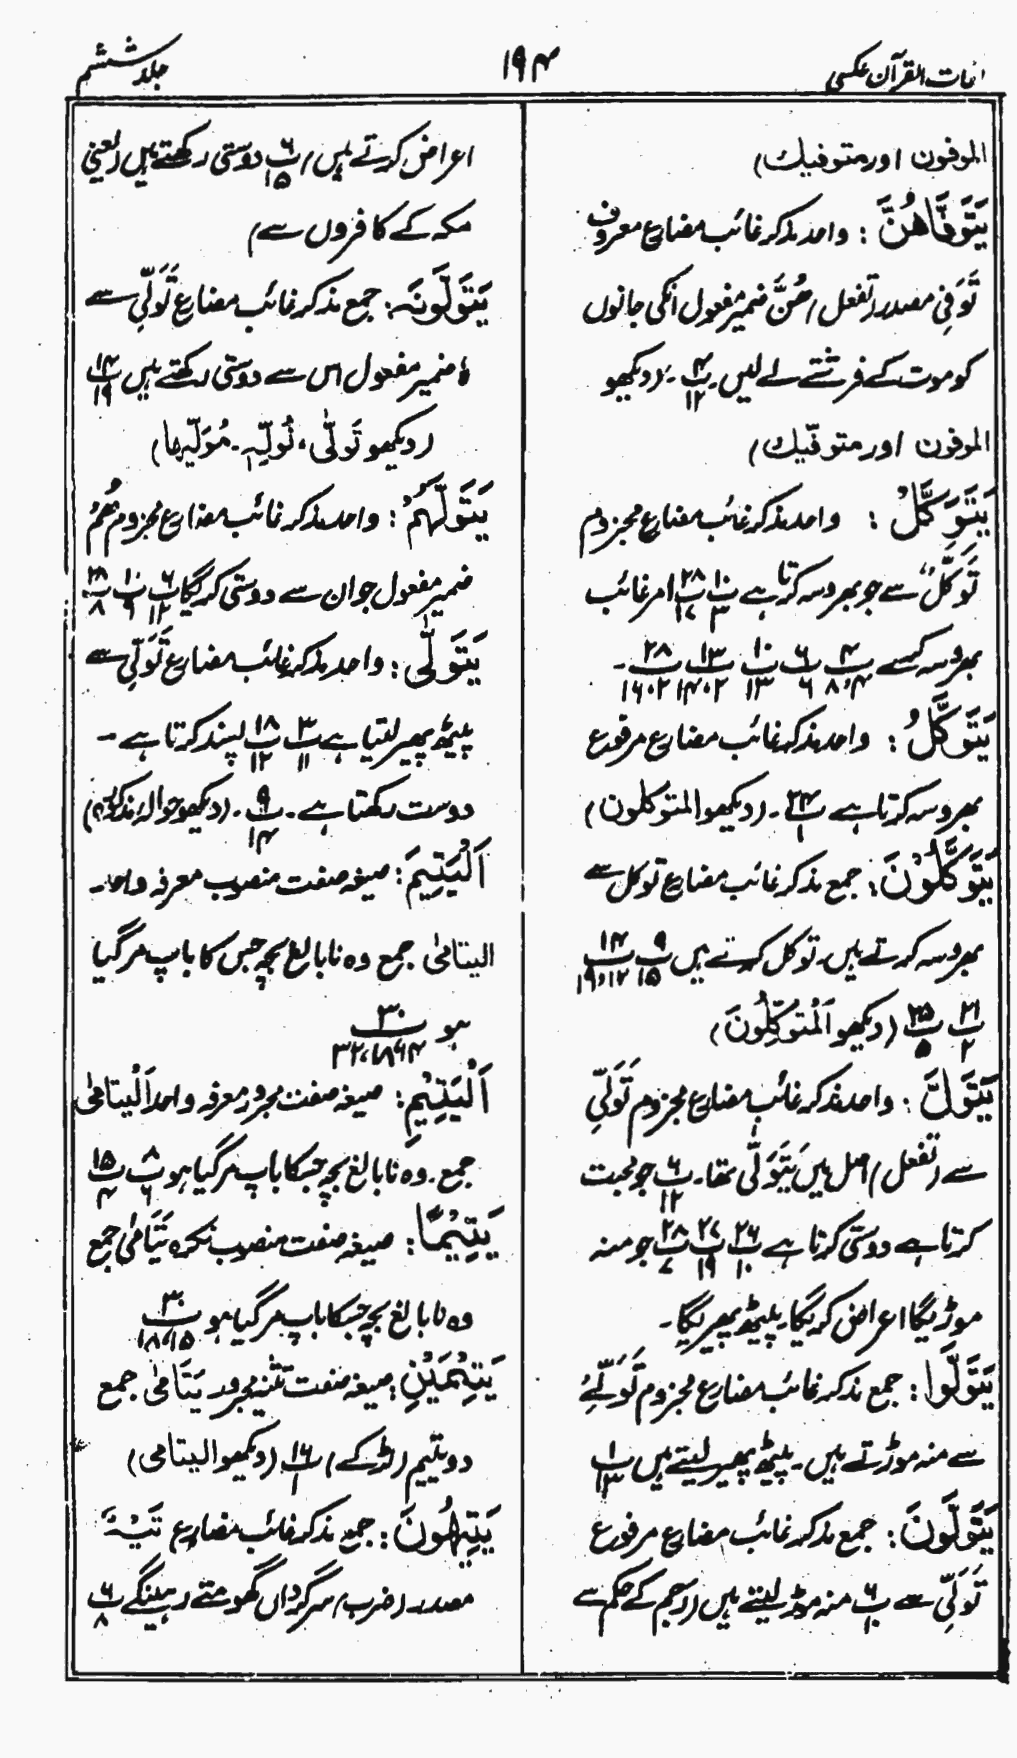 لغات القرآن عکسی
۱۹۴
جلد ششم
الموفون اور متوفیك)
يَتَوَفَّاهُنَّ : واحد مذکر غائب مضارع معروف
تَوَفِّي مصدر (تفعل) هُنَّ ضمیر مفعول انکی جانوں
کو موت کے فرشتے لے لیں۔ پ۴/۱۲۔ (دیکھو
الموفون اور متوفّيك)
يَتَوَكَّلْ : واحد مذکر غائب مضارع مجزوم
تَوَكُّلْ سے جو بھروسہ کرتا ہے پ۱۰/۳ پ۲۸/۱۷ امر غائب
بھروسہ کرے پ۴/۸،۴ پ۶/۶ پ۱۰/۱۳ پ۱۳/۱۴،۲ پ۲۸/۱۶،۲۔
يَتَوَكَّلُ : واحد مذکر غائب مضارع مرفوع
بھروسہ کرتا ہے پ۲۴/۱۔ (دیکھو المتوکلون)
يَتَوَكَّلُوْنَ : جمع مذکر غائب مضارع توکل سے
بھروسہ کرتے ہیں۔ توکل کرتے ہیں پ۹/۱۵ پ۱۴/۱۹،۱۲
پ۲۱/۲ پ۲۵/۵ (دیکھو اَلْمُتَوَكِّلُونَ)
يَتَوَلَّ : واحد مذکر غائب مضارع مجزوم تَوَلِّي
سے (تفعل) اصل میں يَتَوَلّٰى تھا۔ پ۶/۱۲ جو محبت
کرتا ہے دوستی کرتا ہے پ۲۶/۱۰ پ۲۷/۱۹ پ۲۸/۷ جو منہ
موڑیگا اعراض کریگا۔ پیٹھ پھیریگا۔
يَتَوَلَّوْا : جمع مذکر غائب مضارع مجزوم تَوَلِّيْ
سے منہ موڑتے ہیں۔ پیٹھ پھیر لیتے ہیں پ۱/۱۳
يَتَوَلَّوْنَ : جمع مذکر غائب مضارع مرفوع
تَوَلِّي سے پ۶/۱۰ منہ موڑ لیتے ہیں (رجم کے حکم سے
اعراض کرتے ہیں) پ۶/۱۵ دوستی رکھتے ہیں (یعنی
مکہ کے کافروں سے)
يَتَوَلَّوْنَہ : جمع مذکر غائب مضارع تَوَلِّي سے
ہٗ ضمیر مفعول اس سے دوستی رکھتے ہیں پ۱۴/۱۹
(دیکھو تَوَلّٰى، نُوَلِّہٖ۔ مُوَلِّیہا)
يَتَوَلَّهُمْ : واحد مذکر غائب مضارع مجزوم هُمْ
ضمیر مفعول جو ان سے دوستی کریگا پ۶/۱۲ پ۱۰/۹ پ۲۸/۸
يَتَوَلّٰى : واحد مذکر غائب مضارع تَوَلِّي سے
پیٹھ پھیر لیتا ہے پ۳/۱۱ پ۱۸/۱۲ پسند کرتا ہے۔
دوست رکھتا ہے۔ پ۹/۱۴۔ (دیکھو حوالۂ مذکورہ)
اَلْيَتِيْمَ : صیغہ صفت منصوب معرفہ واحد۔
الیتامیٰ جمع وہ نابالغ بچہ جس کا باپ مر گیا
ہو پ۳۰/۳۲،۱۸،۱۴
اَلْيَتِيْمِ : صیغہ صفت مجرور معرفہ واحد اَلْیتامیٰ
جمع۔ وہ نابالغ بچہ جسکا باپ مر گیا ہو پ۸/۶ پ۱۵/۴
يَتِيْمًا : صیغہ صفت منصوب نکرہ يَتَامٰى جمع
وہ نابالغ بچہ جسکا باپ مر گیا ہو پ۳۰/۱۸،۱۵
يَتِيْمَيْنِ : صیغہ صفت تثنیہ مجرور يَتَامٰى جمع
دو یتیم (لڑکے) پ۱۶/۱ (دیکھو الیتامی)
يَتِيْهُونَ : جمع مذکر غائب مضارع تَيْهٌ
مصدر (ضرب) سرگرداں گھومتے رہینگے پ۶/۸